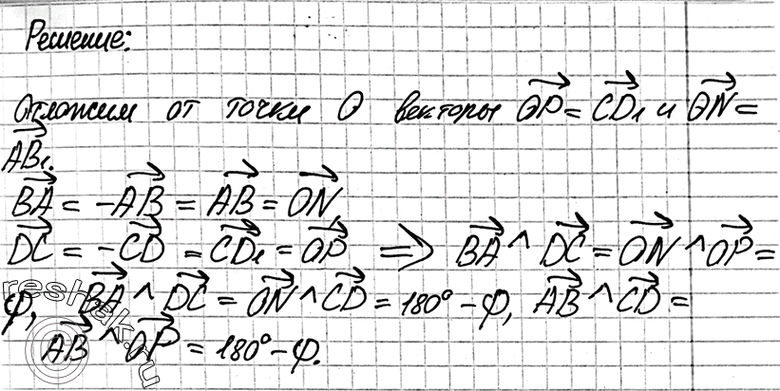 Решение:
Отложим от точки O векторы OP = CD₁ и ON =
AB₁.
BA = -AB = AB = ON
DC = -CD = CD₁ = OP ⇒ BA ^ DC = ON ^ OP =
φ, BA ^ DC = ON ^ CD = 180° - φ, AB ^ CD =
AB ^ OP = 180° - φ.
reshak.ru